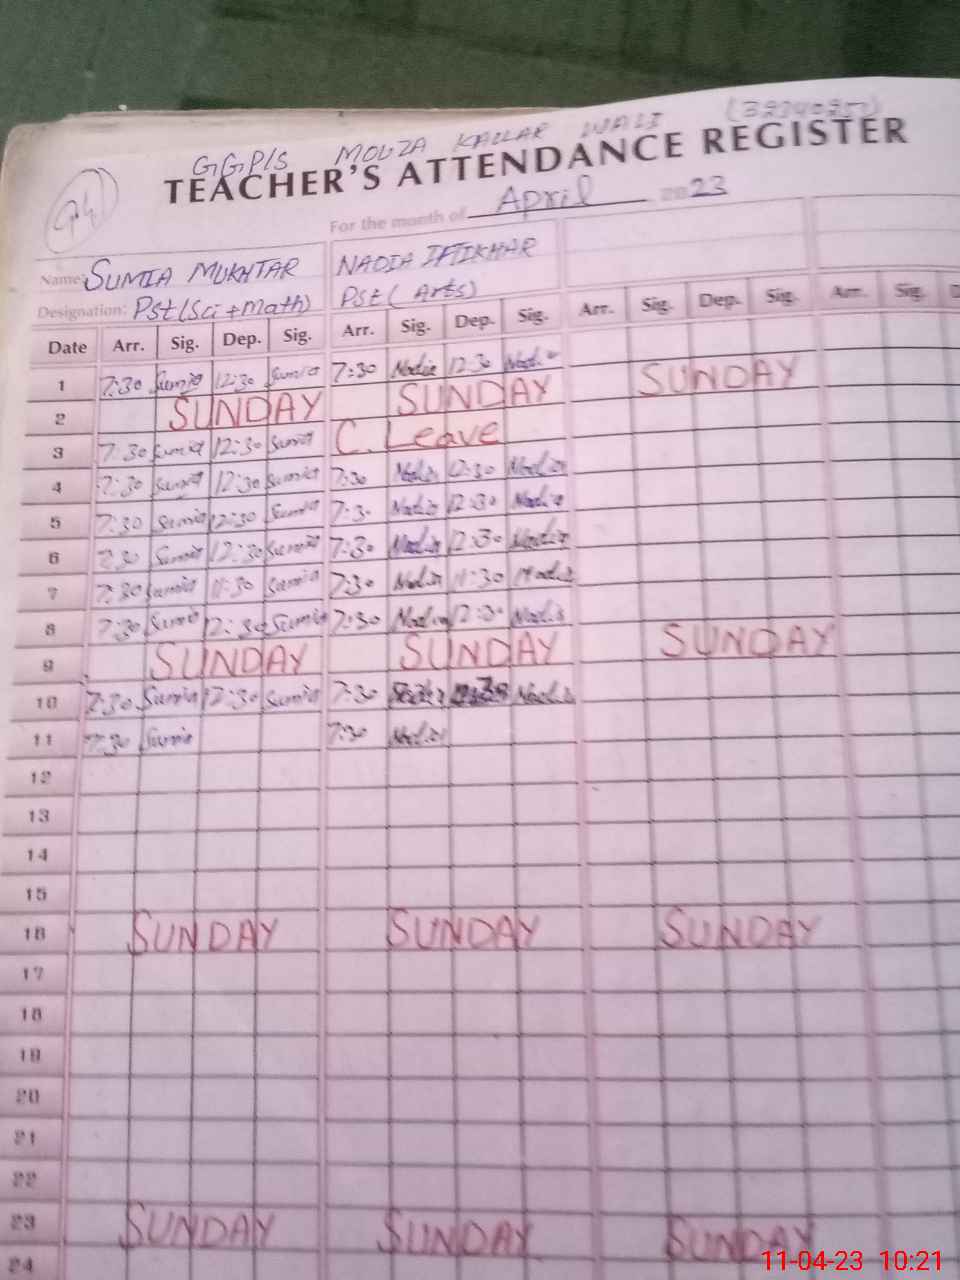 GGP/S MOUZA KALLAR WALI
TEACHER'S ATTENDANCE REGISTER
94
For the month of April 2023
Name: SUMIA MUKHTAR NADIA IFTIKHAR
Designation: Pst(Sci+Math) Pst( Arts)
Date Arr. Sig. Dep. Sig. Arr. Sig. Dep. Sig. Arr. Sig. Dep. Sig. Arr. Sig.
1 7:30 Sumia 12:30 Sumia 7:30 Nadia 12:30 Nadia
2 SUNDAY SUNDAY SUNDAY
3 7:30 Sumia 12:30 Sumia C. Leave
4 7:30 Sumia 12:30 Sumia 7:30 Nadia 12:30 Nadia
5 7:30 Sumia 12:30 Sumia 7:30 Nadia 12:30 Nadia
6 7:30 Sumia 12:30 Sumia 7:30 Nadia 12:30 Nadia
7 7:30 Sumia 11:30 Sumia 7:30 Nadia 11:30 Nadia
8 7:30 Sumia 12:30 Sumia 7:30 Nadia 12:30 Nadia
9 SUNDAY SUNDAY SUNDAY
10 7:30 Sumia 12:30 Sumia 7:30 Nadia
11 7:30 Sumia 7:30 Nadia
12
13
14
15
16 SUNDAY SUNDAY SUNDAY
17
18
19
20
21
22
23 SUNDAY SUNDAY SUNDAY
24
11-04-23 10:21